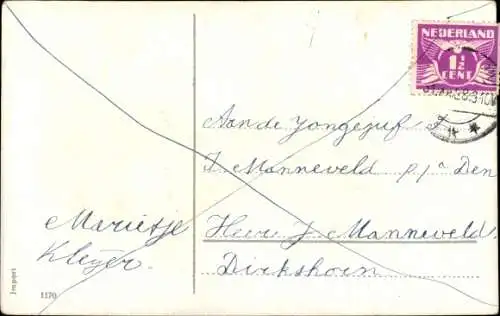 NEDERLAND
1½
CENT
Aan de Jongejuf
J Manneveld p/a Den
Heer J. Manneveld
Dirkshorn
Marietje
Kleijer.
Import
1170